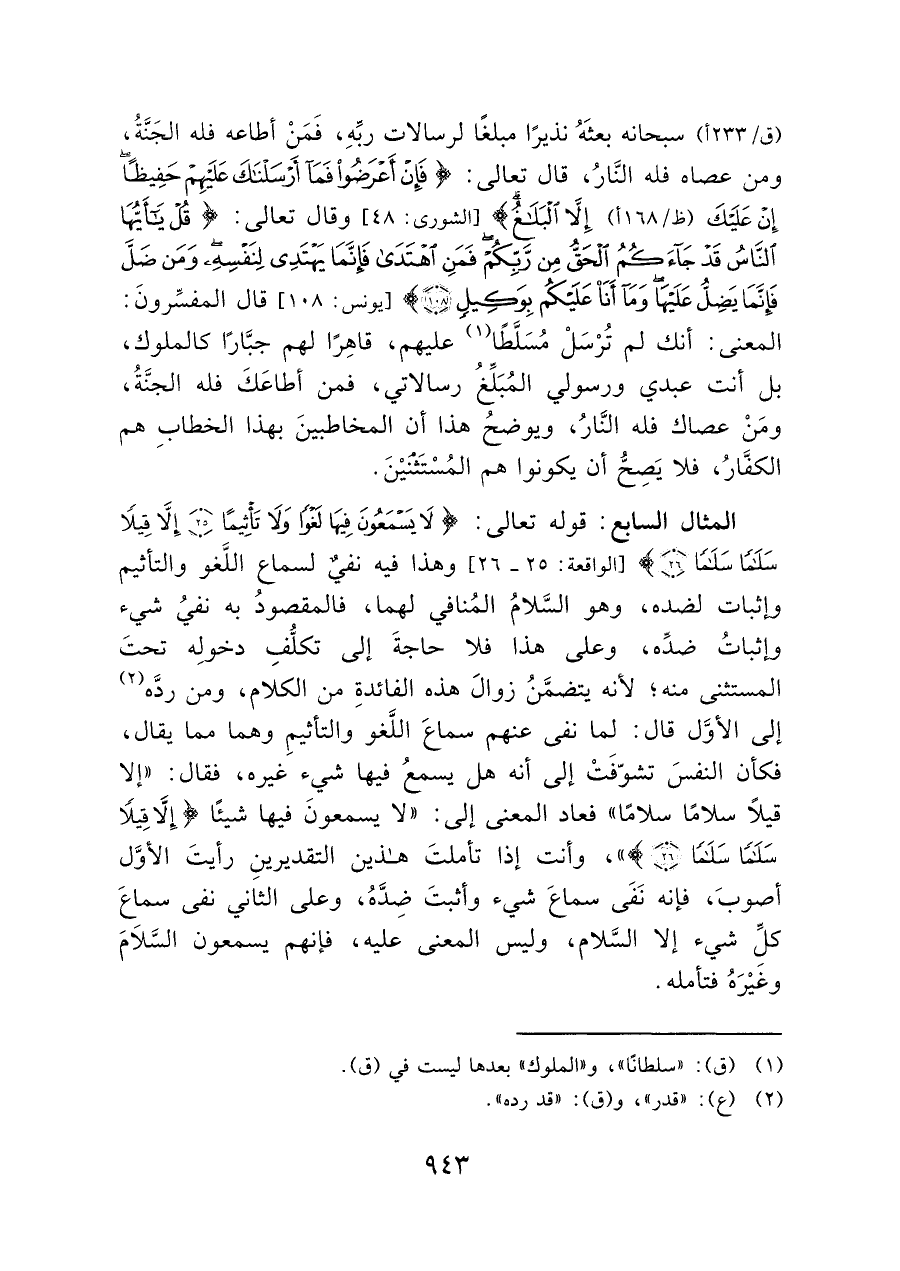 (ق/٢٣٣أ) سبحانه بعثَهُ نذيرًا مبلغًا لرسالات ربِّهِ، فَمَنْ أطاعه فله الجَنَّةُ،
ومن عصاه فله النَّارُ، قال تعالى: ﴿ فَإِنْ أَعْرَضُوا۟ فَمَآ أَرْسَلْنَـٰكَ عَلَيْهِمْ حَفِيظًا ۖ
إِنْ عَلَيْكَ (ظ/١٦٨أ) إِلَّا ٱلْبَلَـٰغُ ۗ﴾ [الشورى: ٤٨] وقال تعالى: ﴿ قُلْ يَـٰٓأَيُّهَا
ٱلنَّاسُ قَدْ جَآءَكُمُ ٱلْحَقُّ مِن رَّبِّكُمْ ۖ فَمَنِ ٱهْتَدَىٰ فَإِنَّمَا يَهْتَدِى لِنَفْسِهِۦ ۖ وَمَن ضَلَّ
فَإِنَّمَا يَضِلُّ عَلَيْهَا ۖ وَمَآ أَنَا۠ عَلَيْكُم بِوَكِيلٍ ١٠٨﴾ [يونس: ١٠٨] قال المفسِّرونَ:
المعنى: أنك لم تُرْسَلْ مُسَلَّطًا(١) عليهم، قاهِرًا لهم جبَّارًا كالملوك،
بل أنت عبدي ورسولي المُبَلِّغُ رسالاتي، فمن أطاعَكَ فله الجنَّةُ،
ومَنْ عصاك فله النَّارُ، ويوضحُ هذا أن المخاطبينَ بهذا الخطابِ هم
الكفَّارُ، فلا يَصِحُّ أن يكونوا هم المُسْتَثْنَيْنَ.
المثال السابع: قوله تعالى: ﴿ لَا يَسْمَعُونَ فِيهَا لَغْوًا وَلَا تَأْثِيمًا ٢٥ إِلَّا قِيلًا
سَلَـٰمًا سَلَـٰمًا ٢٦ ﴾ [الواقعة: ٢٥ ـ ٢٦] وهذا فيه نفيٌ لسماع اللَّغو والتأثيم
وإثبات لضده، وهو السَّلامُ المُنافي لهما، فالمقصودُ به نفيُ شيء
وإثباتُ ضدِّه، وعلى هذا فلا حاجةَ إلى تكلُّفِ دخولِه تحتَ
المستثنى منه؛ لأنه يتضمَّنُ زوالَ هذه الفائدةِ من الكلام، ومن ردَّه(٢)
إلى الأوَّل قال: لما نفى عنهم سماعَ اللَّغو والتأثيمِ وهما مما يقال،
فكأن النفسَ تشوّفَتْ إلى أنه هل يسمعُ فيها شيء غيره، فقال: «إلا
قيلاً سلامًا سلامًا» فعاد المعنى إلى: «لا يسمعونَ فيها شيئًا ﴿ إِلَّا قِيلًا
سَلَـٰمًا سَلَـٰمًا ٢٦ ﴾»، وأنت إذا تأملتَ هـٰذين التقديرينِ رأيتَ الأوَّل
أصوبَ، فإنه نَفَى سماعَ شيء وأثبتَ ضِدَّهُ، وعلى الثاني نفى سماعَ
كلِّ شيء إلا السَّلام، وليس المعنى عليه، فإنهم يسمعون السَّلاَمَ
وغَيْرَهُ فتأمله.
(١) (ق): «سلطانًا»، و«الملوك» بعدها ليست في (ق).
(٢) (ع): «قدر»، و(ق): «قد رده».
٩٤٣